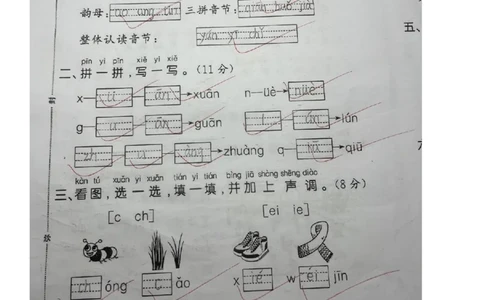 韵母: ao ang ün 三拼音节: qiān huǒ jiā
整体认读音节: yuán yī chī
pīn yi pīn xiě yi xiě
二、拼一拼,写一写。(11分)
x ü ān xuān n—üè nüè
g u ān guān l ián
zh u àng zhuàng q iū qiū
kàn tú xuǎn yi xuǎn tián yi tián bìng jiā shàng shēng diào
三、看图,选一选,填一填,并加上声调。(8分)
[c ch] [ei ie]
ch óng c ǎo x ié w éi jīn